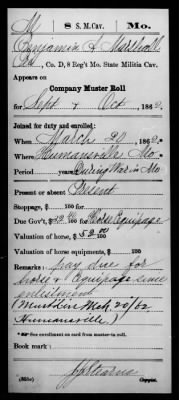 M 8 S. M. Cav. Mo.
Benjamin S. Marshall
Co. D, 8 Reg't Mo. State Militia Cav.
Appears on
Company Muster Roll
for Sept & Oct, 1862.
Joined for duty and enrolled:
When March 20, 1862.
Where Humansville Mo.
Period years During War in Mo
Present or absent Present
Stoppage, $ 100 for
Due Gov't, $ 100 for Horse Equipage
Valuation of horse, $ 100
Valuation of horse equipments, $ 100
Remarks: pay due for
horse & Equipage since
enlistment
(Must'd in Mch 20/62
Humansville)
* See enrollment on card from muster-in roll.
Book mark:
Copyist.